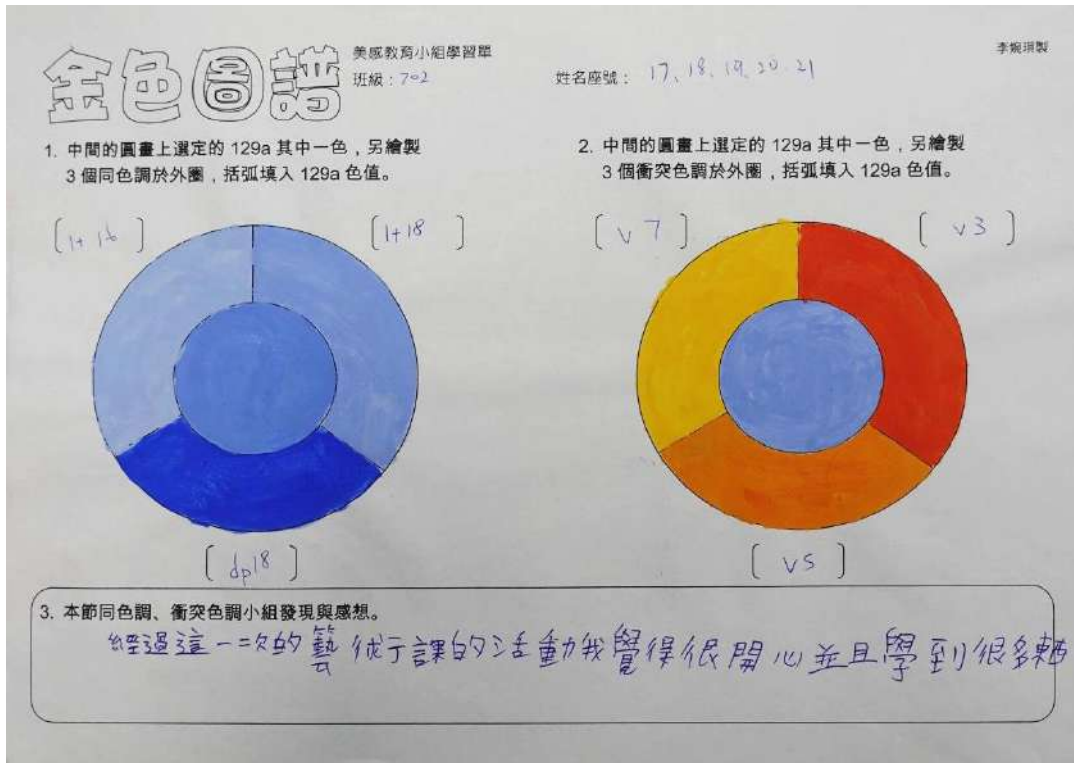 金色圖譜
美感教育小組學習單
班級：702
姓名座號： 17、18、19、20、21
李婉琪製
1. 中間的圓畫上選定的 129a 其中一色，另繪製
3 個同色調於外圈，括弧填入 129a 色值。
2. 中間的圓畫上選定的 129a 其中一色，另繪製
3 個衝突色調於外圈，括弧填入 129a 色值。
[ lt 16 ]
[ lt 18 ]
[ dp18 ]
[ v 7 ]
[ v3 ]
[ v5 ]
3. 本節同色調、衝突色調小組發現與感想。
經過這一次的藝術于課的活動我覺得很開心並且學到很多